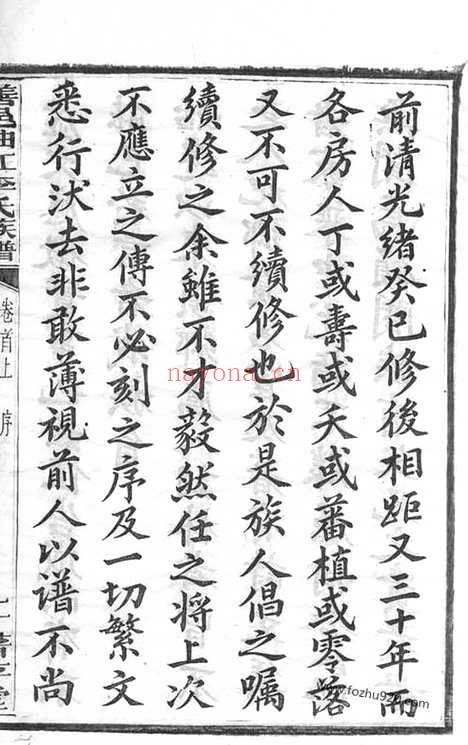 前清光緒癸巳修後相距又三十年而
各房人丁或壽或夭或蕃植或零落
又不可不續修也於是族人倡之囑
續修之余雖不才毅然任之將上次
不應立之傳不必刻之序及一切繁文
悉行汰去非敢薄視前人以谱不尚
李氏族譜
卷首上 序
nayona.cn
www.fozhu920.com